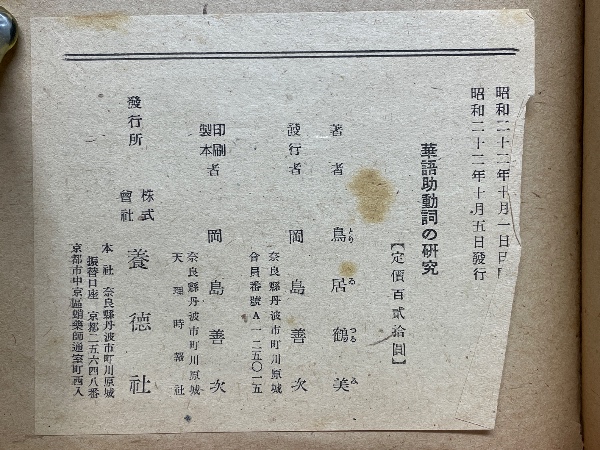 昭和二十二年十月一日印
昭和二十二年十月五日發行
華語助動詞の研究
【定價百貳拾圓】
著者 鳥居鶴美
とり ゐ つる み
發行者 岡島善次
奈良縣丹波市町川原城
會員番號A一二五〇一五
印刷製本者 岡島善次
奈良縣丹波市町川原城
天理時報社
發行所 株式會社 養德社
本社 奈良縣丹波市町川原城
振替口座 京都二五六四八番
京都市中京區蛸藥師通室町西入